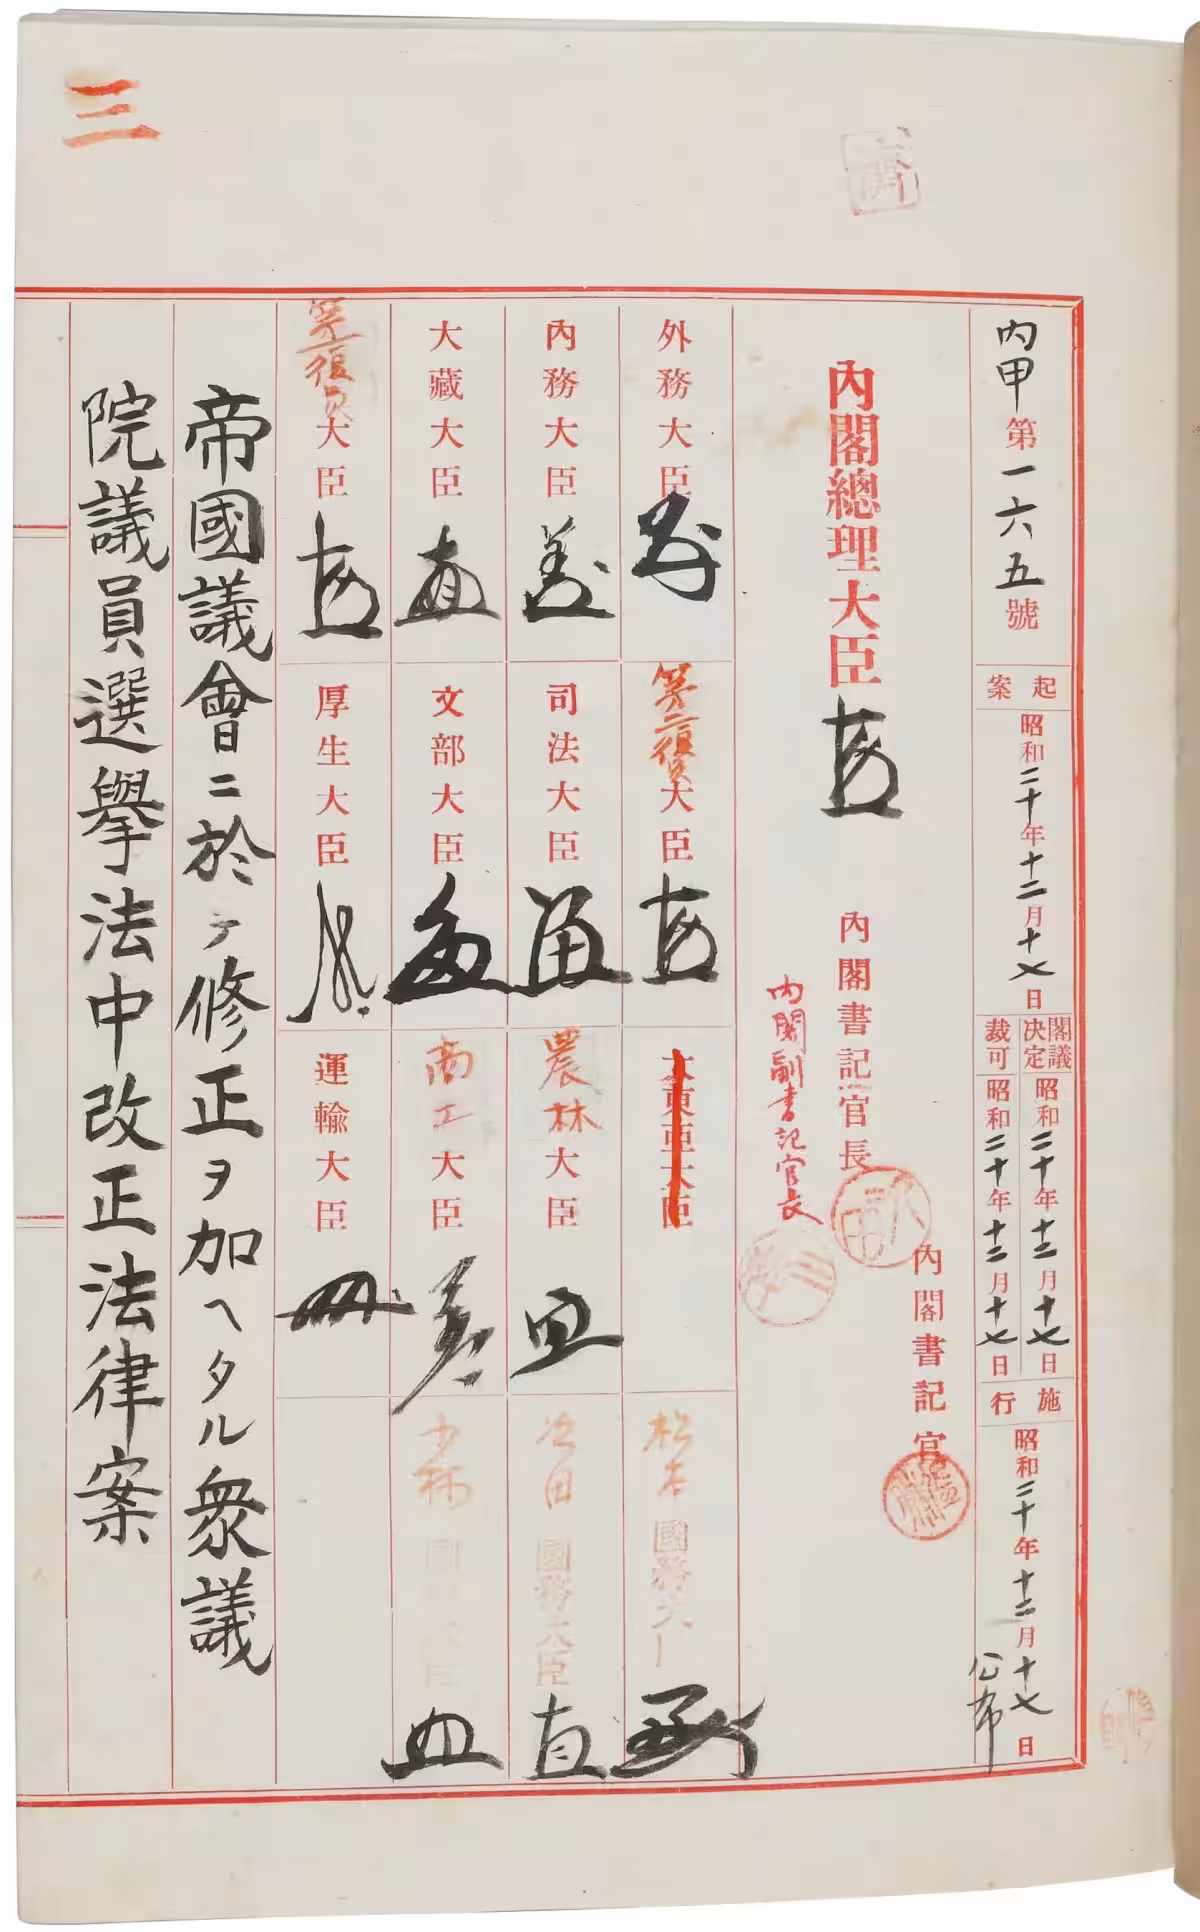 三
内甲第一六五號
起案
昭和二十年十二月十七日
閣議決定
昭和二十年十二月十七日
裁可
昭和二十年十二月十七日
施行
昭和二十年十二月十七日
公布
內閣總理大臣
內閣書記官長
内閣副書記官長
內閣書記官
外務大臣
第二復員大臣
大東亞大臣
松本國務大臣
內務大臣
司法大臣
農林大臣
次田國務大臣
大藏大臣
文部大臣
商工大臣
小林國務大臣
第一復員大臣
厚生大臣
運輸大臣
帝國議會ニ於テ修正ヲ加ヘタル衆議
院議員選擧法中改正法律案